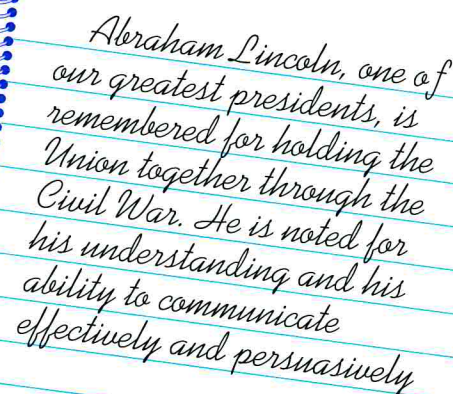 Abraham Lincoln, one of
our greatest presidents, is
remembered for holding the
Union together through the
Civil War. He is noted for
his understanding and his
ability to communicate
effectively and persuasively